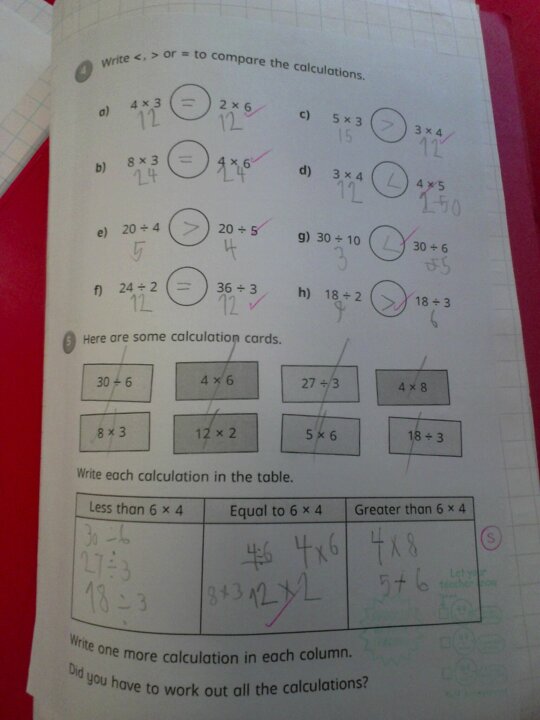 4 Write <, > or = to compare the calculations.
a) 4 × 3 = 2 × 6
12 12
c) 5 × 3 > 3 × 4
15 12
b) 8 × 3 = 4 × 6
24 24
d) 3 × 4 < 4 × 5
12
e) 20 ÷ 4 > 20 ÷ 5
5 4
g) 30 ÷ 10 < 30 ÷ 6
3 5
f) 24 ÷ 2 = 36 ÷ 3
12 12
h) 18 ÷ 2 > 18 ÷ 3
9 6
5 Here are some calculation cards.
30 ÷ 6 4 × 6 27 ÷ 3 4 × 8
8 × 3 12 × 2 5 × 6 18 ÷ 3
Write each calculation in the table.
Less than 6 × 4 Equal to 6 × 4 Greater than 6 × 4
30 ÷ 6 4 × 6 4 × 8
27 ÷ 3 8 × 3 12 × 2 5 + 6
18 ÷ 3
S
Let your
teacher know
Write one more calculation in each column.
Did you have to work out all the calculations?